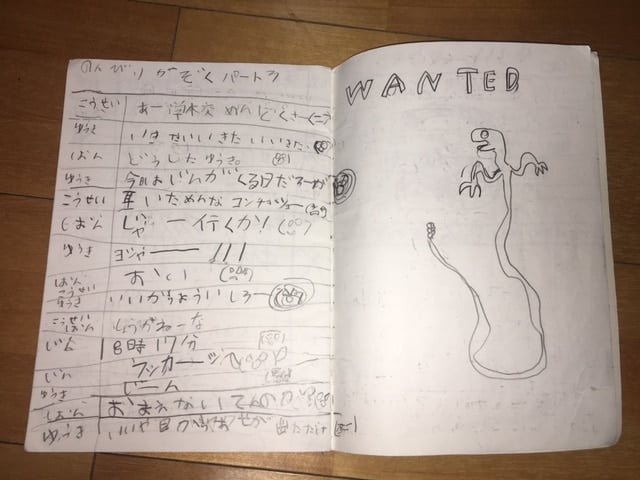 のんびりかぞくパート3
こうせい あー 学校 めんどくさー
ゆうき いきせいいきた いいきた
しおん どうしたゆうき。
ゆうき 今日はじんがくる日だろーが
こうせい 耳いためんな コンチクショー
しおん じゃー行くか!
ゆうき ヨジャー !!!
おい
しおん こうせい ゆうき いいかぢょういしろー
こうせい しおん しょうがねーな
じん 8時17分
ラッカーッ
じん じーん
ゆうき しおん おまえないてんのか
ゆうき いいや 目のあせが 出ただけ
WANTED